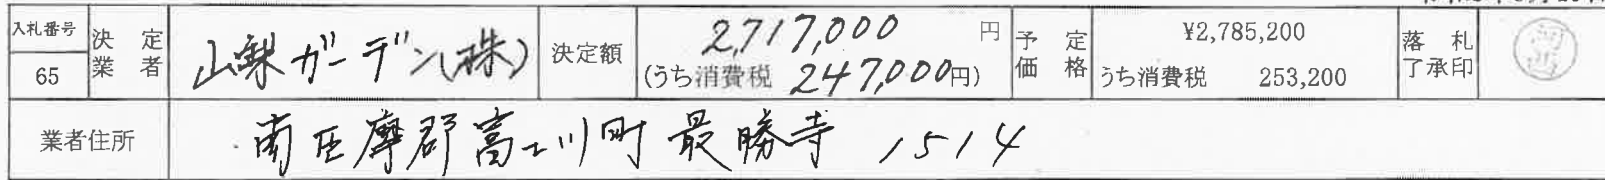 入札番号 65
決定業者 山梨ガーデン(株)
決定額 2,717,000円
(うち消費税 247,000円)
予定価格 ¥2,785,200
うち消費税 253,200
落札了承印
業者住所 南巨摩郡富士川町最勝寺 1514